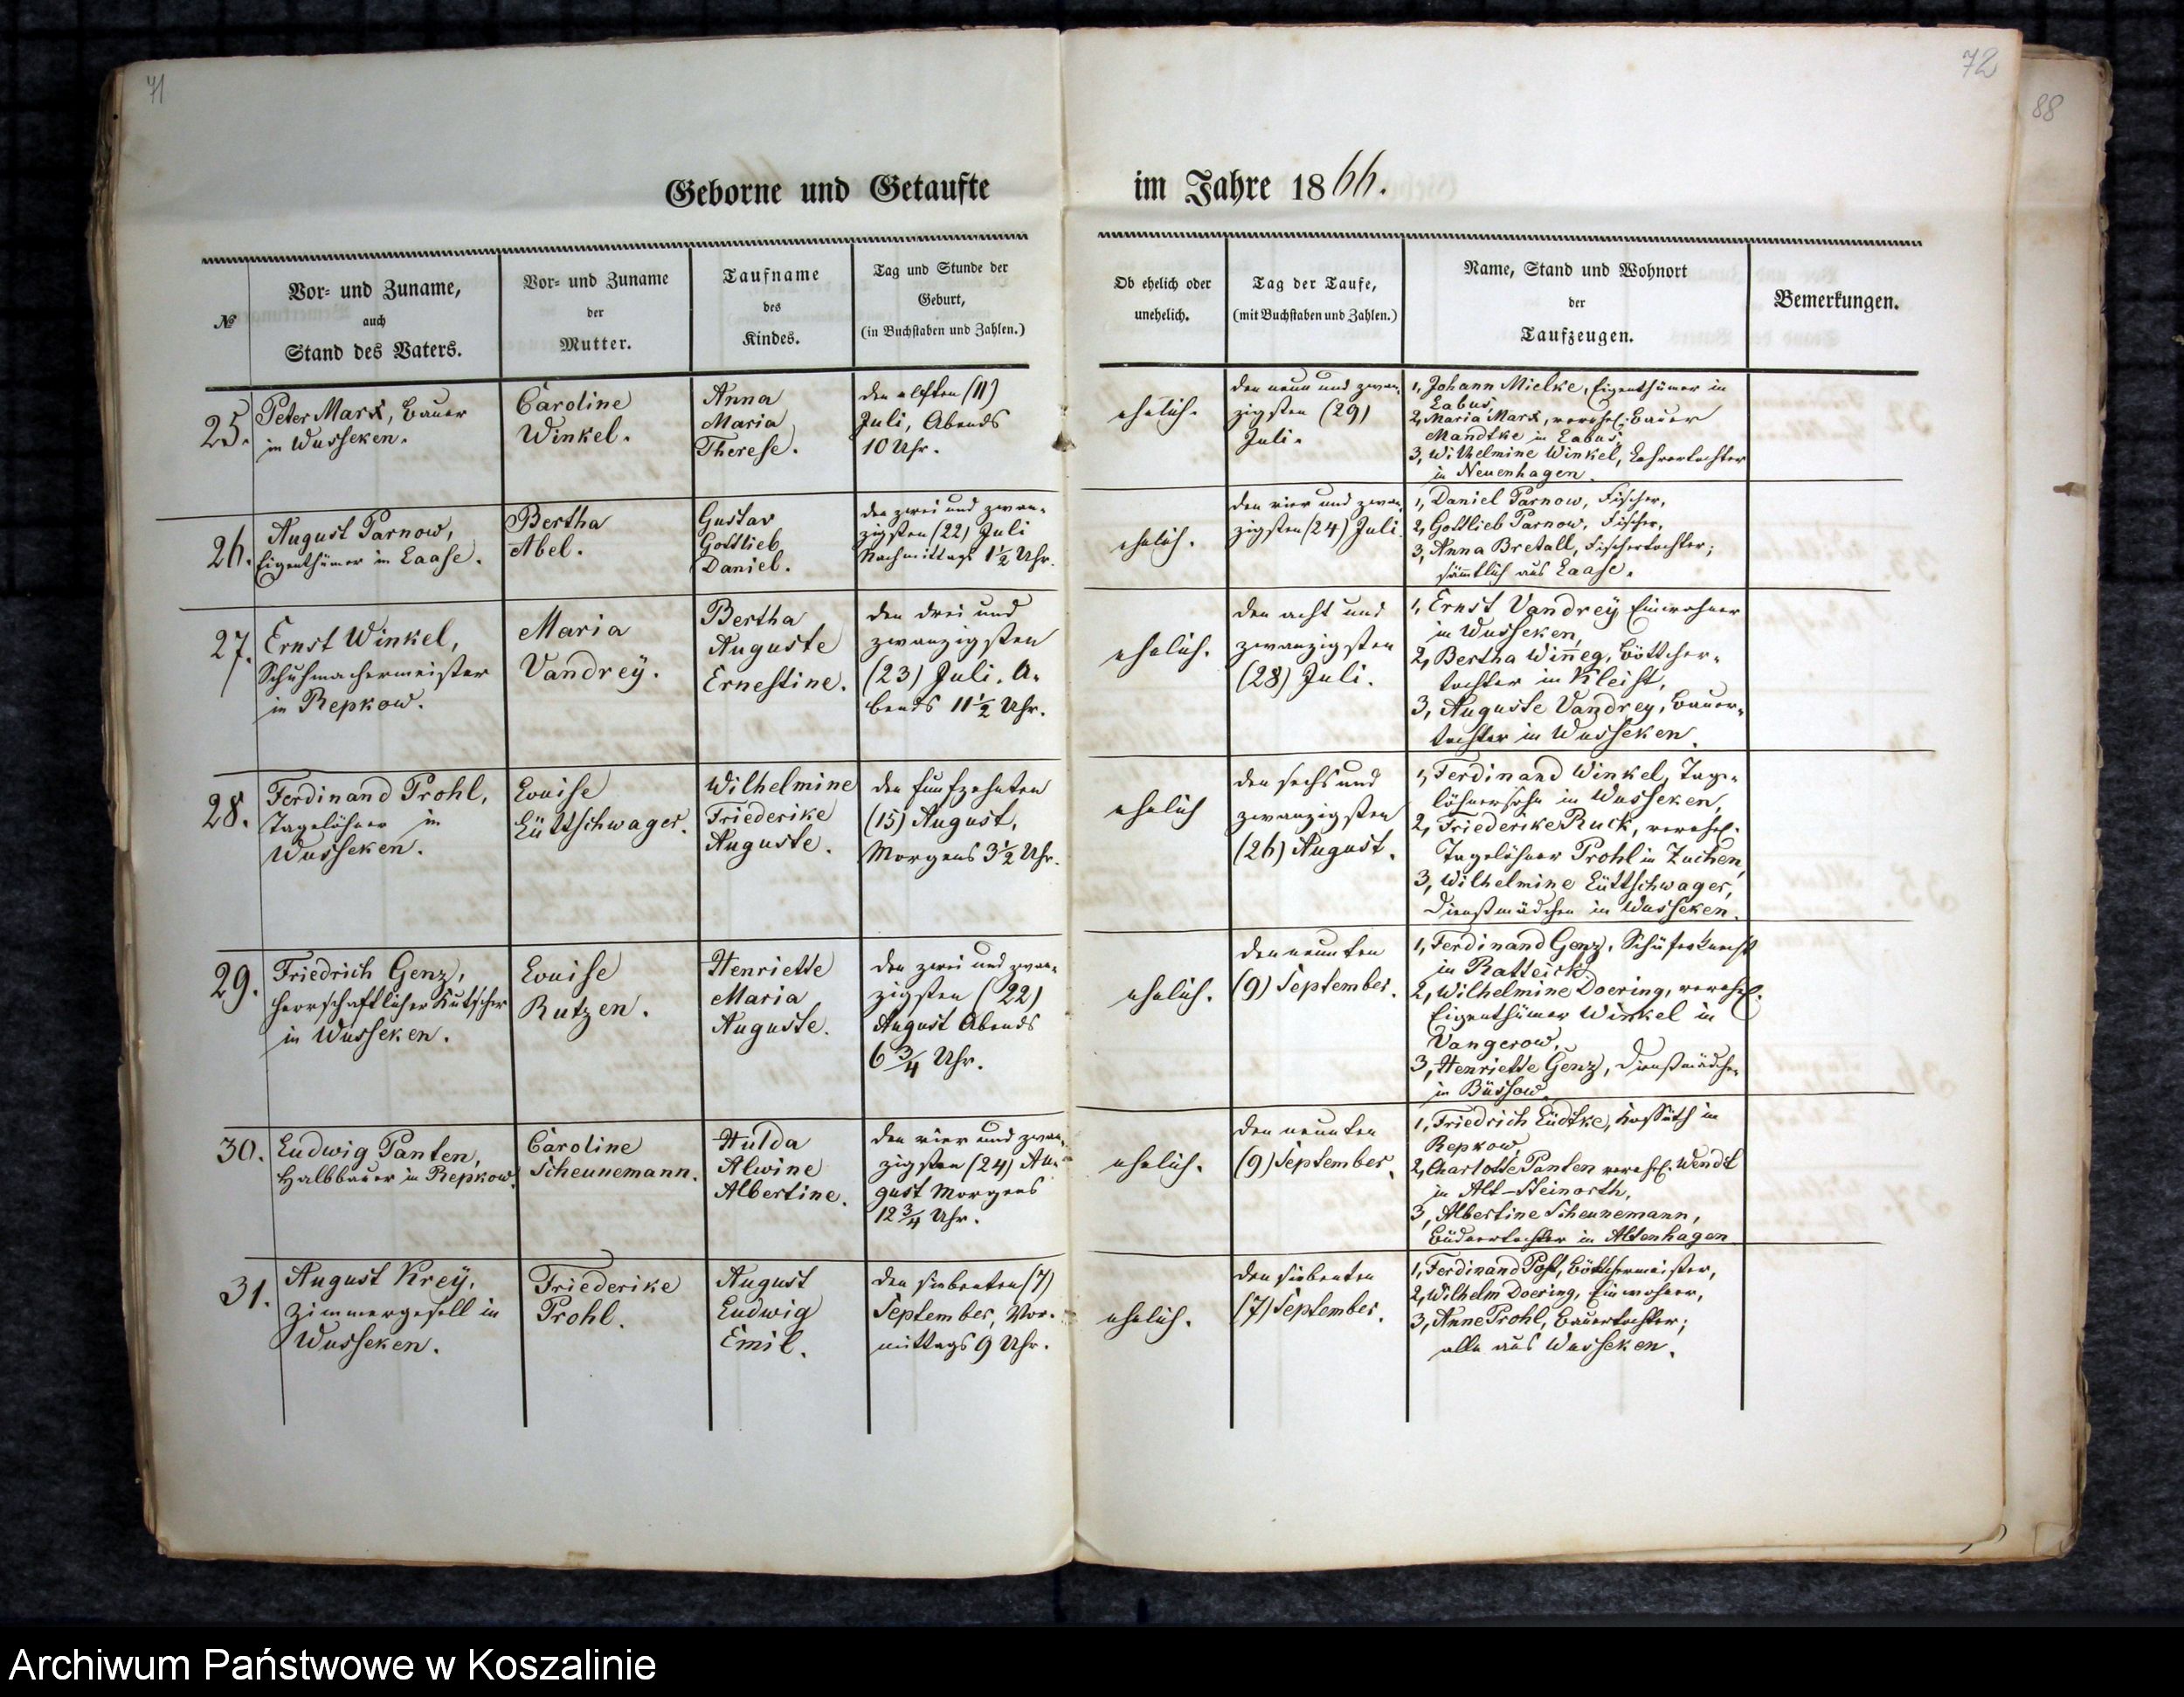 71
72
88
Geborne und Getaufte
im Jahre 1866.
№
Vor- und Zuname,
auch
Stand des Vaters.
Vor- und Zuname
der
Mutter.
Taufname
des
Kindes.
Tag und Stunde der
Geburt,
(in Buchstaben und Zahlen.)
Ob ehelich oder
unehelich.
Tag der Taufe,
(mit Buchstaben und Zahlen.)
Name, Stand und Wohnort
der
Taufzeugen.
Bemerkungen.
25.
Peter Marx, Bauer
in Wusseken.
Caroline
Winkel.
Anna
Maria
Therese.
den elften (11)
Juli, Abends
10 Uhr.
ehelich.
den neun und zwan-
zigsten (29)
Juli.
1, Johann Mielke, Eigenthümer in
Labus,
2, Maria Marx, verehel. Bauer
Mandtke in Labus,
3, Wilhelmine Winkel, Lehrertochter
in Neuenhagen.
26.
August Parnow,
Eigenthümer in Laase.
Bertha
Abel.
Gustav
Gottlieb
Daniel.
den zwei und zwan-
zigsten (22) Juli
Nachmittags 1½ Uhr.
ehelich.
den vier und zwan-
zigsten (24) Juli.
1, Daniel Parnow, Fischer,
2, Gottlieb Parnow, Fischer,
3, Anna Bretall, Fischertochter;
sämmtlich aus Laase.
27.
Ernst Winkel,
Schuhmachermeister
in Repkow.
Maria
Vandrey.
Bertha
Auguste
Ernestine.
den drei und
zwanzigsten
(23) Juli, A-
bends 11½ Uhr.
ehelich.
den acht und
zwanzigsten
(28) Juli.
1, Ernst Vandrey, Einwohner
in Wusseken,
2, Bertha Winneg, Böttcher-
tochter in Kleist,
3, Auguste Vandrey, Bauer-
tochter in Wusseken.
28.
Ferdinand Prohl,
Tagelöhner in
Wusseken.
Louise
Lüttschwager.
Wilhelmine
Friederike
Auguste.
den funfzehnten
(15) August,
Morgens 3½ Uhr.
ehelich
den sechs und
zwanzigsten
(26) August.
1, Ferdinand Winkel, Tage-
löhnersohn in Wusseken,
2, Friederike Ruck, verehel.
Tagelöhner Prohl in Zuchen,
3, Wilhelmine Lüttschwager,
Dienstmädchen in Wusseken.
29.
Friedrich Genz,
herrschaftlicher Kutscher
in Wusseken.
Louise
Rutzen.
Henriette
Maria
Auguste.
den zwei und zwan-
zigsten (22)
August Abends
6¾ Uhr.
ehelich.
den neunten
(9) September.
1, Ferdinand Genz, Schäferknecht
in Ratteick,
2, Wilhelmine Doering, verehel.
Eigenthümer Winkel in
Vangerow,
3, Henriette Genz, Dienstmädchen
in Büssow.
30.
Ludwig Panten,
Halbbauer in Repkow.
Caroline
Scheunemann.
Hulda
Alwine
Albertine.
den vier und zwan-
zigsten (24) Au-
gust Morgens
12¾ Uhr.
ehelich.
den neunten
(9) September.
1, Friedrich Lüdtke, Kossäth in
Repkow,
2, Charlotte Panten verehel. Wendt
in Alt-Steinorth,
3, Albertine Scheunemann,
Büdnertochter in Altenhagen
31.
August Krey,
Zimmergesell in
Wusseken.
Friederike
Prohl.
August
Ludwig
Emil.
den siebenten (7)
September, Vor-
mittags 9 Uhr.
ehelich.
den siebenten
(7) September.
1, Ferdinand Post, Böttchermeister,
2, Wilhelm Doering, Einwohner,
3, Anne Prohl, Bauertochter;
alle aus Wusseken.
Archiwum Państwowe w Koszalinie